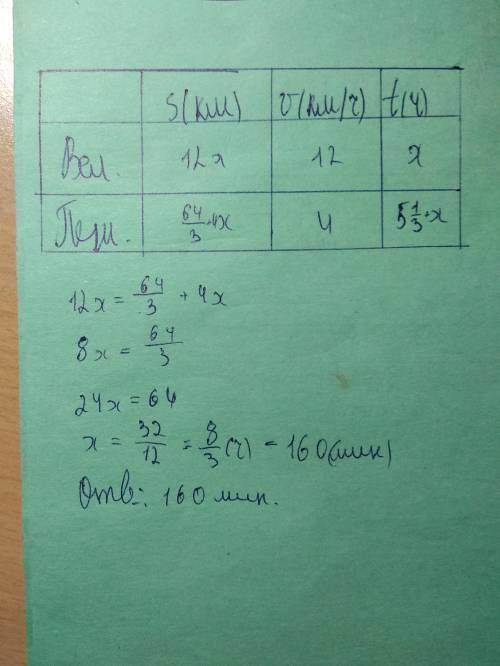 S(км) v(км/ч) t(ч)
Вел. 12x 12 x
Пеш. 64/3+4x 4 5 1/3+x
12x = 64/3 + 4x
8x = 64/3
24x = 64
x = 32/12 = 8/3 (ч) = 160(мин)
Отв.: 160 мин.